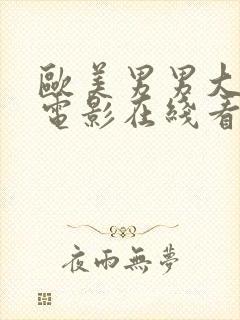 歐美男男大
電影在綫看
夜雨無夢